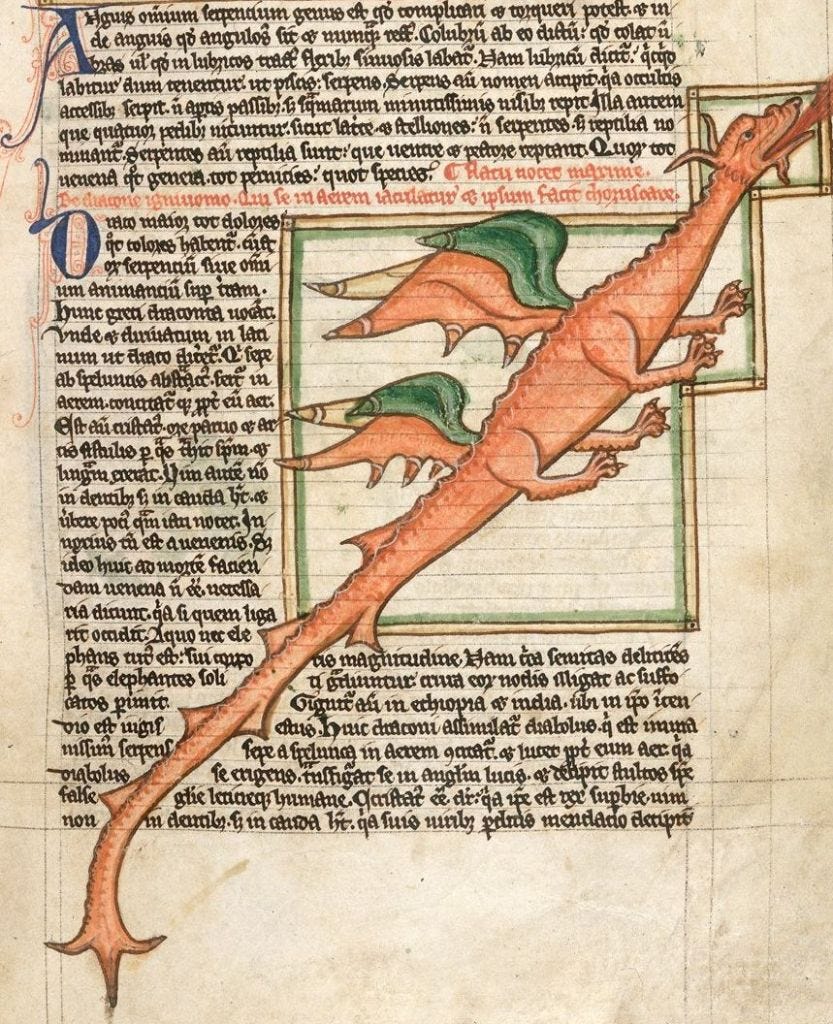 Anguis omium serpentium genus est qd complicari & torqueri potest. & in
de anguis qd angulosus sit & numq̃ rectꝰ. Colubrũ ab eo dictũ: qd colat ũ
bras ul' qd in lubricos tractꝰ flexibꝫ sinuosis labatᷣ. Nam lubricũ dicitᷣ: qicqd
labitur dum tenetur. ut piscis: serpens. Serpens aũ nomen accipit. qa occultis
accessibꝫ serpit. ñ aptis passibꝫ. sꝫ sq̃marum minutissimis nisibꝫ repit. Illa autem
que quatuor pedibꝫ nituntur. sicut lacte. & stelliones: ñ serpentes. sꝫ reptilia no
minantᷣ. Serpentes aũ reptilia sunt: que ventre & pectore reptant. Quorꝫ tot
uenena qt genera. tot pernicies: quot species.
De dracone ignivomo. Qui se in aerem iaculatur & ipsum facit choruscare.
Draco maior
tot dolores
qt colores habentᷣ.
serpentiũ sive omi
um animantiũ sup tram.
Hunc greci draconta uocãt.
Unde & dirivatum in lati
num ut draco dicetᷣ. Qi sepe
ab speluncis abstractꝰ. fertᷣ in
aerem. concitatᷣ qꝫ ppt eũ aer.
Est aũ cristatꝰ. ore parvo & ar
tis fistulis p qs trahit spm. &
linguam exerat. Vim autẽ nõ
in dentibꝫ sꝫ in cauda ht. &
ubere pociꝰ qm ictu nocet. In
noxius tñ est a venenis. Sꝫ
ideo huic ad mortẽ facien
dam uenena ñ eẽ. necessa
ria dicunt. qa si quem liga
rit occidit. A quo nec ele
phans tutꝰ est: sui corpo ris magnitudine. Nam circa semitas delitẽs
p qs elephantes soli ti gradiuntur crura eorꝫ nodis illigat ac suffo
catos perimit. Gignitᷣ aũ in ethiopia & india. ubi in ipo icen
dio est iugis estus. Huic draconi assimilatᷣ diabolus. qi est inma
nissimꝰ serpens sepe a spelunca in aerem 9citatᷣ. & lucet ppt eum aer. qa
diabolus se erigens. transfigat se in anglm lucis. & decipit stultos spe
false glie leticieqꝫ humane. Cristatꝰ eẽ dr: qa ipe est rex supbie. uim
non in dentibꝫ. sꝫ in cauda ht. qa suis viribꝫ perditis mendacio decipit